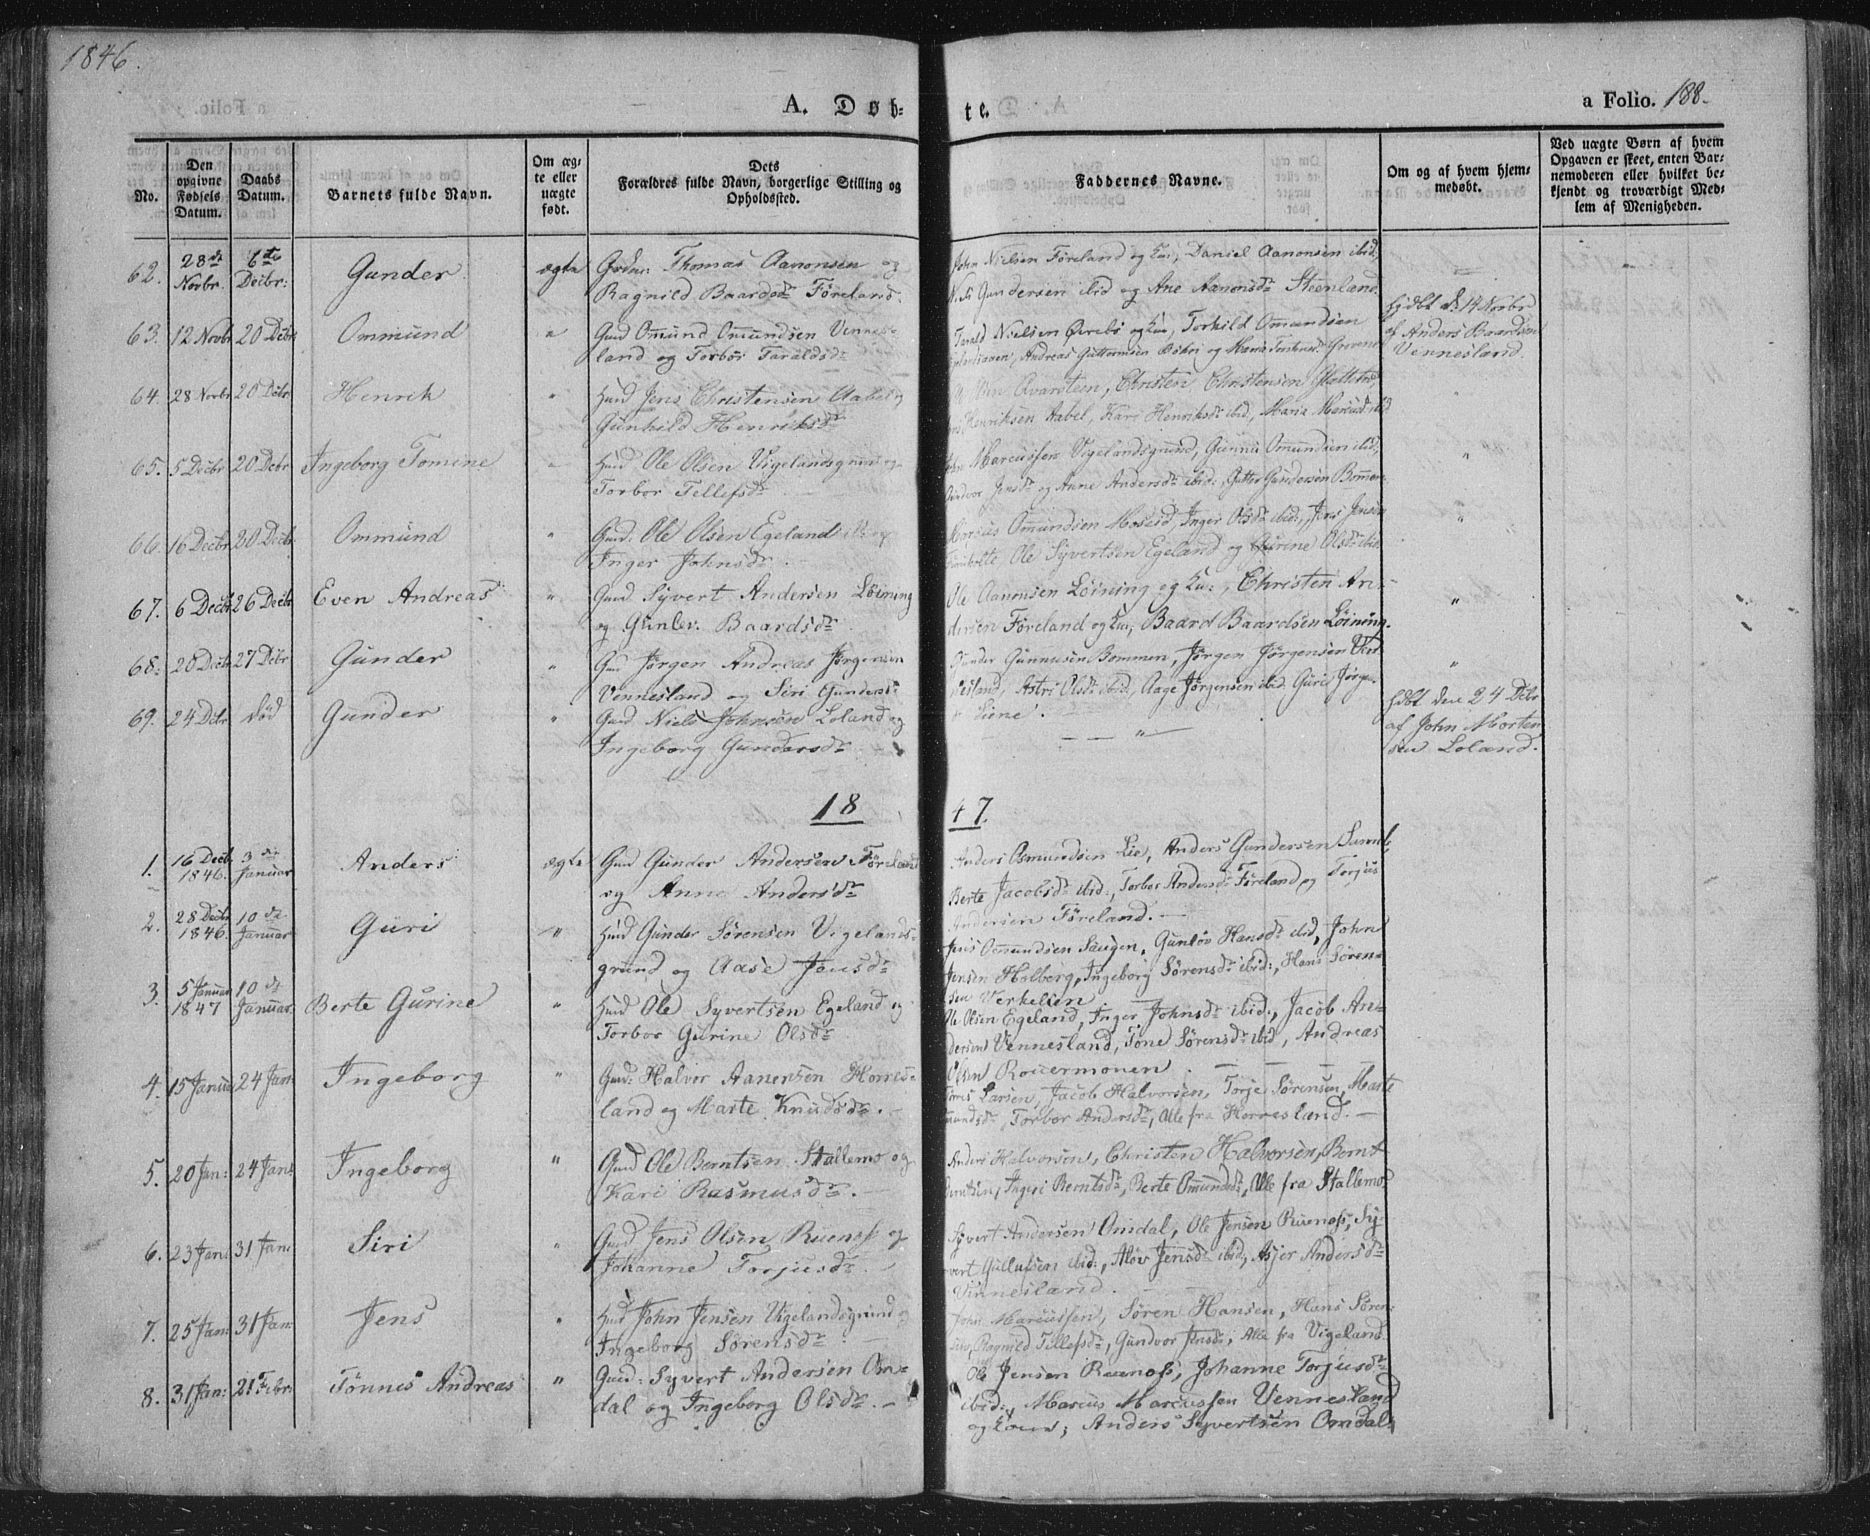 1846.
A. Døb-
te.
a Folio. 188.
No.
Den opgivne Fødsels Datum.
Daabs Datum.
Barnets fulde Navn.
Om ægte eller uægte født.
Dets Forældres fulde Navn, borgerlige Stilling og Opholdssted.
Faddernes Navne.
Om og af hvem hjemmedøbt.
Ved uægte Børn af hvem Opgaven er skeet, enten Barnemoderen eller hvilket bekjendt og troværdigt Medlem af Menigheden.
62. 28de Novbr. 6te Decbr: Gunder ægte Thomas Aanonsen og
Ragnild Baardsdr Föreland.
John Nielsen Föreland og Kur, Daniel Aanonsen ibid,
Gundersen ibid og Ane Aanonsdr Steenland.
63. 12 Novbr 20 Decbr Ommund " Gmd Omund Omundsen Vennes-
land og Torbor Taraldsdr
Tarald Nielsen Övrebö og Kur, Torkild Omundsen
Andreas Guttormsen og Maria
Hjdbt d. 14 Novbr
af Anders Baardsen
Vennesland.
64. 28 Novbr 20 Decbr Henrik " Huud Jens Christensen Aabel og
Gunhild Henriksdr
Christen Christensen
Henriksen Aabel, Kari Henriksdr ibid, Maria Marcusdr ibid
65. 5 Decbr 20 Decbr Ingeborg Tomine " Huud Ole Olsen Vigelandsgrund og
Torbor Tellefsdr
Marcussen Vigelandsgrund, Gunnu Omundsen ibid,
Gundvor Jensdr og Anne Andersdr ibid:, Gutter Gundersen Bommen
66. 16 Decbr 20 Decbr Ommund " Gmd. Ole Olsen Egeland og
Inger Johnsdr
Marcus Omundsen Moseid, Inger Olsdr ibid:, Jens Jensen
Ole Syvertsen Egeland og Gurine Olsdr ibid.
67. 6 Decbr 26 Decbr Even Andreas " Gmd Syvert Andersen Löining
og Gunlev. Baardsdr
Ole Aanonsen Löining og Kur:, Christen An-
dersen Föreland og Kur, Baard Baardsen Löining.
"
68. 20 Decbr 27 Decbr Gunder " Gmd Jörgen Andreas Jörgensen
Vennesland og Siri Gundersdr
Gunder Gunnusen Bommen, Jörgen Jörgensen Ven-
nesland, Astri Olsdr ibid, Aage Jörgensen ibid Guri Jörgens-
dr Liene.
"
69. 24 Decbr död Gunder " Gmd Niels Johnsen Loland og
Ingeborg Gundersdr
"
Hdbt den 24 Decbr
af John Morten
sen Loland.
18
47.
1. 16 Decb. 1846. 3die Januar Anders ægte Gmd Gunder Andersen Föreland
og Anne Andersdr
Anders Osmundsen Lie, Anders Gundersen
Berte Jacobsdr ibid:, Torbor Andersdr Föreland og Torjus
Andersen Föreland.
2. 28 Decbr 1846. 10de Januar Guri " Huud Gunder Sörensen Vigelands-
grund og Aase Jensdr
Jens Omundsen Saugen, Gunlöv Hansdr ibid, John
Jensen Holberg, Ingeborg Sörensdr ibid:, Hans Sören-
sen Verkelien
3. 5 Januar 1847 10de Januar Berte Gurine " Huud Ole Syvertsen Egeland og
Torbor Gurine Olsdr
Ole Olsen Egeland, Inger Johnsdr ibid:, Jacob An-
dersen Vennesland, Töne Sörensdr ibid, Andreas
Olsen
4. 15 Januar 24 Jan: Ingeborg " Gmd: Halvor Aanensen Horres-
land og Marte Knudsdr.
Larsen, Jacob Halvorsen, Torje Sörensen, Marte
Torbor Andersdr, Alle fra Horresland.
5. 20 Jan: 24 Jan: Ingeborg " Gmd Ole Berntsen Stallemo og
Kari Rasmusdr.
Anders Halvorsen, Christen Halvorsen, Bernt
Berntsen, Ingeri Berntsdr, Berte Omundsdr, Alle fra Stallemo
6. 23 Jan: 31 Jan: Siri " Gmd Jens Olsen Ruenæs og
Johanne Torjusdr.
Syvert Andersen Omdal, Ole Jensen Ruenæs, Sy-
vert Gullufsen ibid:, Alöv Jensdr ibid:, Asjer Andersdr
Vennesland.
7. 25 Jan: 31 Jan: Jens " Huud John Jensen Vigelandsgrund og
Ingeborg Sörensdr
John Marcussen, Sören Hansen, Hans Sören-
sen, Ragnild Tellefsdr, Gundvor Jensdr, Alle fra Vigeland.
8. 31 Jan: 21 Febr: Tönnes Andreas " Gmd: Syvert Andersen Om-
dal og Ingeborg Olsdr.
Ole Jensen Ruenæs, Johanne Torjusdr
ibid:, Marcus Marcussen Vennesland
og Kone; Anders Syvertsen Omdal.